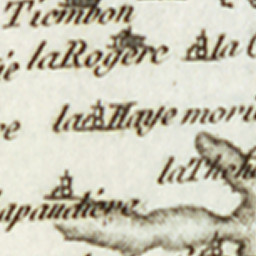 Tiembon
laRogere
la
la Haye mori
la Theh
apaudiere